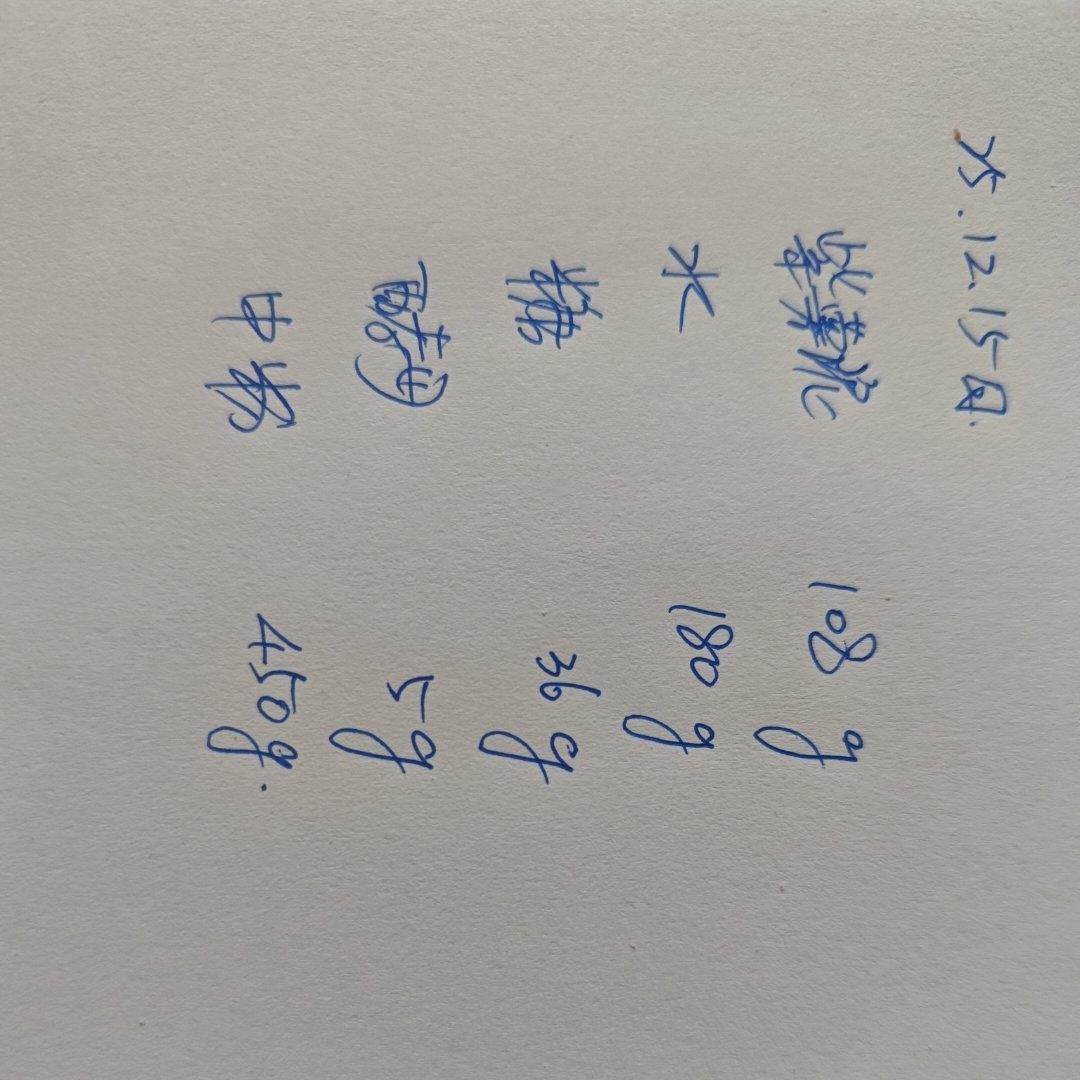 25.12.15日.
紫薯泥 108 g
水 180 g
糖 36 g
酵母 5 g
中筋 450g.